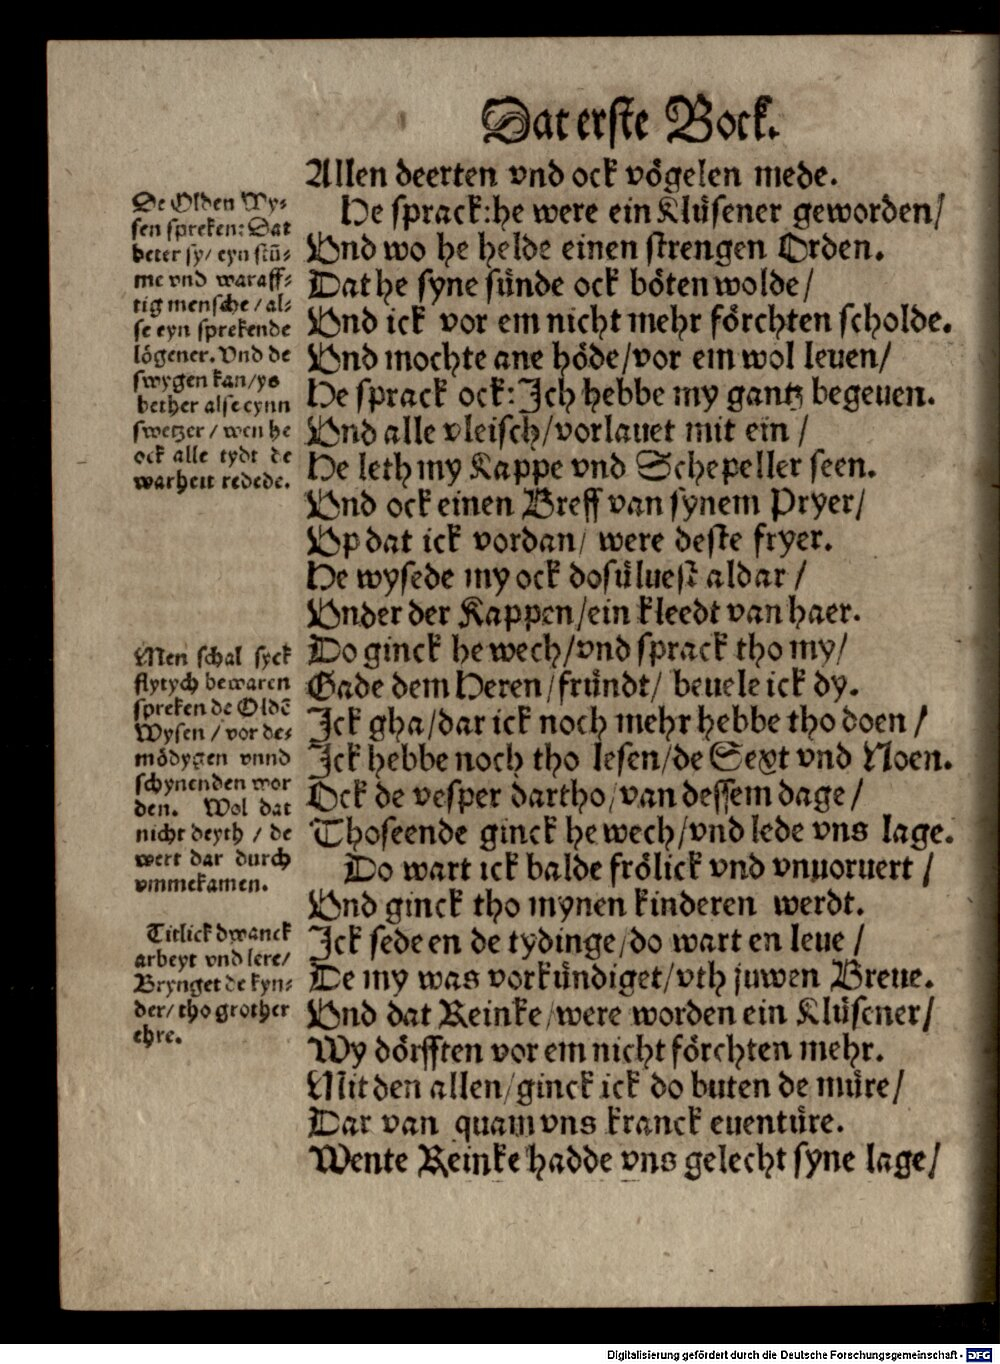 Dat erste Bock.
Allen deerten vnd ock vögelen mede.
He sprack: he were ein Klüsener geworden/
Vnd wo he helde einen strengen Orden.
Dat he syne sünde ock böten wolde/
Vnd ick vor em nicht mehr förchten scholde.
Vnd mochte ane höde/vor em wol leuen/
He sprack ock: Ich hebbe my gantz begeuen.
Vnd alle vleisch/vorlauet mit ein/
He leth my Kappe vnd Schepeller seen.
Vnd ock einen Breff van synem Pryer/
Vp dat ick vordan/ were deste fryer.
He wysede my ock dosüluest aldar/
Vnder der Kappen/ein kleedt van haer.
Do ginck he wech/vnd sprack tho my/
Gade dem Heren/fründt/ beuele ick dy.
Ick gha/dar ick noch mehr hebbe tho doen/
Ick hebbe noch tho lesen/de Sext vnd Noen.
Ock de vesper dartho/van dessem dage/
Thoseende ginck he wech/vnd lede vns lage.
Do wart ick balde frölick vnd vnuoruert/
Vnd ginck tho mynen kinderen werdt.
Ick sede en de tydinge/do wart en leue/
De my was vorkündiget/vth juwen Breue.
Vnd dat Reinke/were worden ein Klüsener/
Wy dörfften vor em nicht förchten mehr.
Mit den allen/ginck ick do buten de müre/
Dar van quam vns kranck euentüre.
Wente Reinke hadde vns gelecht syne lage/
De Olden Wy-
sen spreken: Dat
beter sy/ eyn stū-
me vnd waraff-
tig mensche/al-
se eyn sprekende
lögener. Vnd de
swygen kan/ys
bether alse eynn
swetzer/ wen he
ock alle tydt de
warheit redede.
Men schal syck
flytych bewaren
spreken de Oldē
Wysen/ vor de-
mödygen vnnd
schynenden wor
den. Wol dat
nicht deyth/ de
wert dar durch
vmmekamen.
Titlick dwanck
arbeyt vnd lere/
Brynget de kyn-
der/ tho grother
ehre.
Digitalisierung gefördert durch die Deutsche Forschungsgemeinschaft - DFG